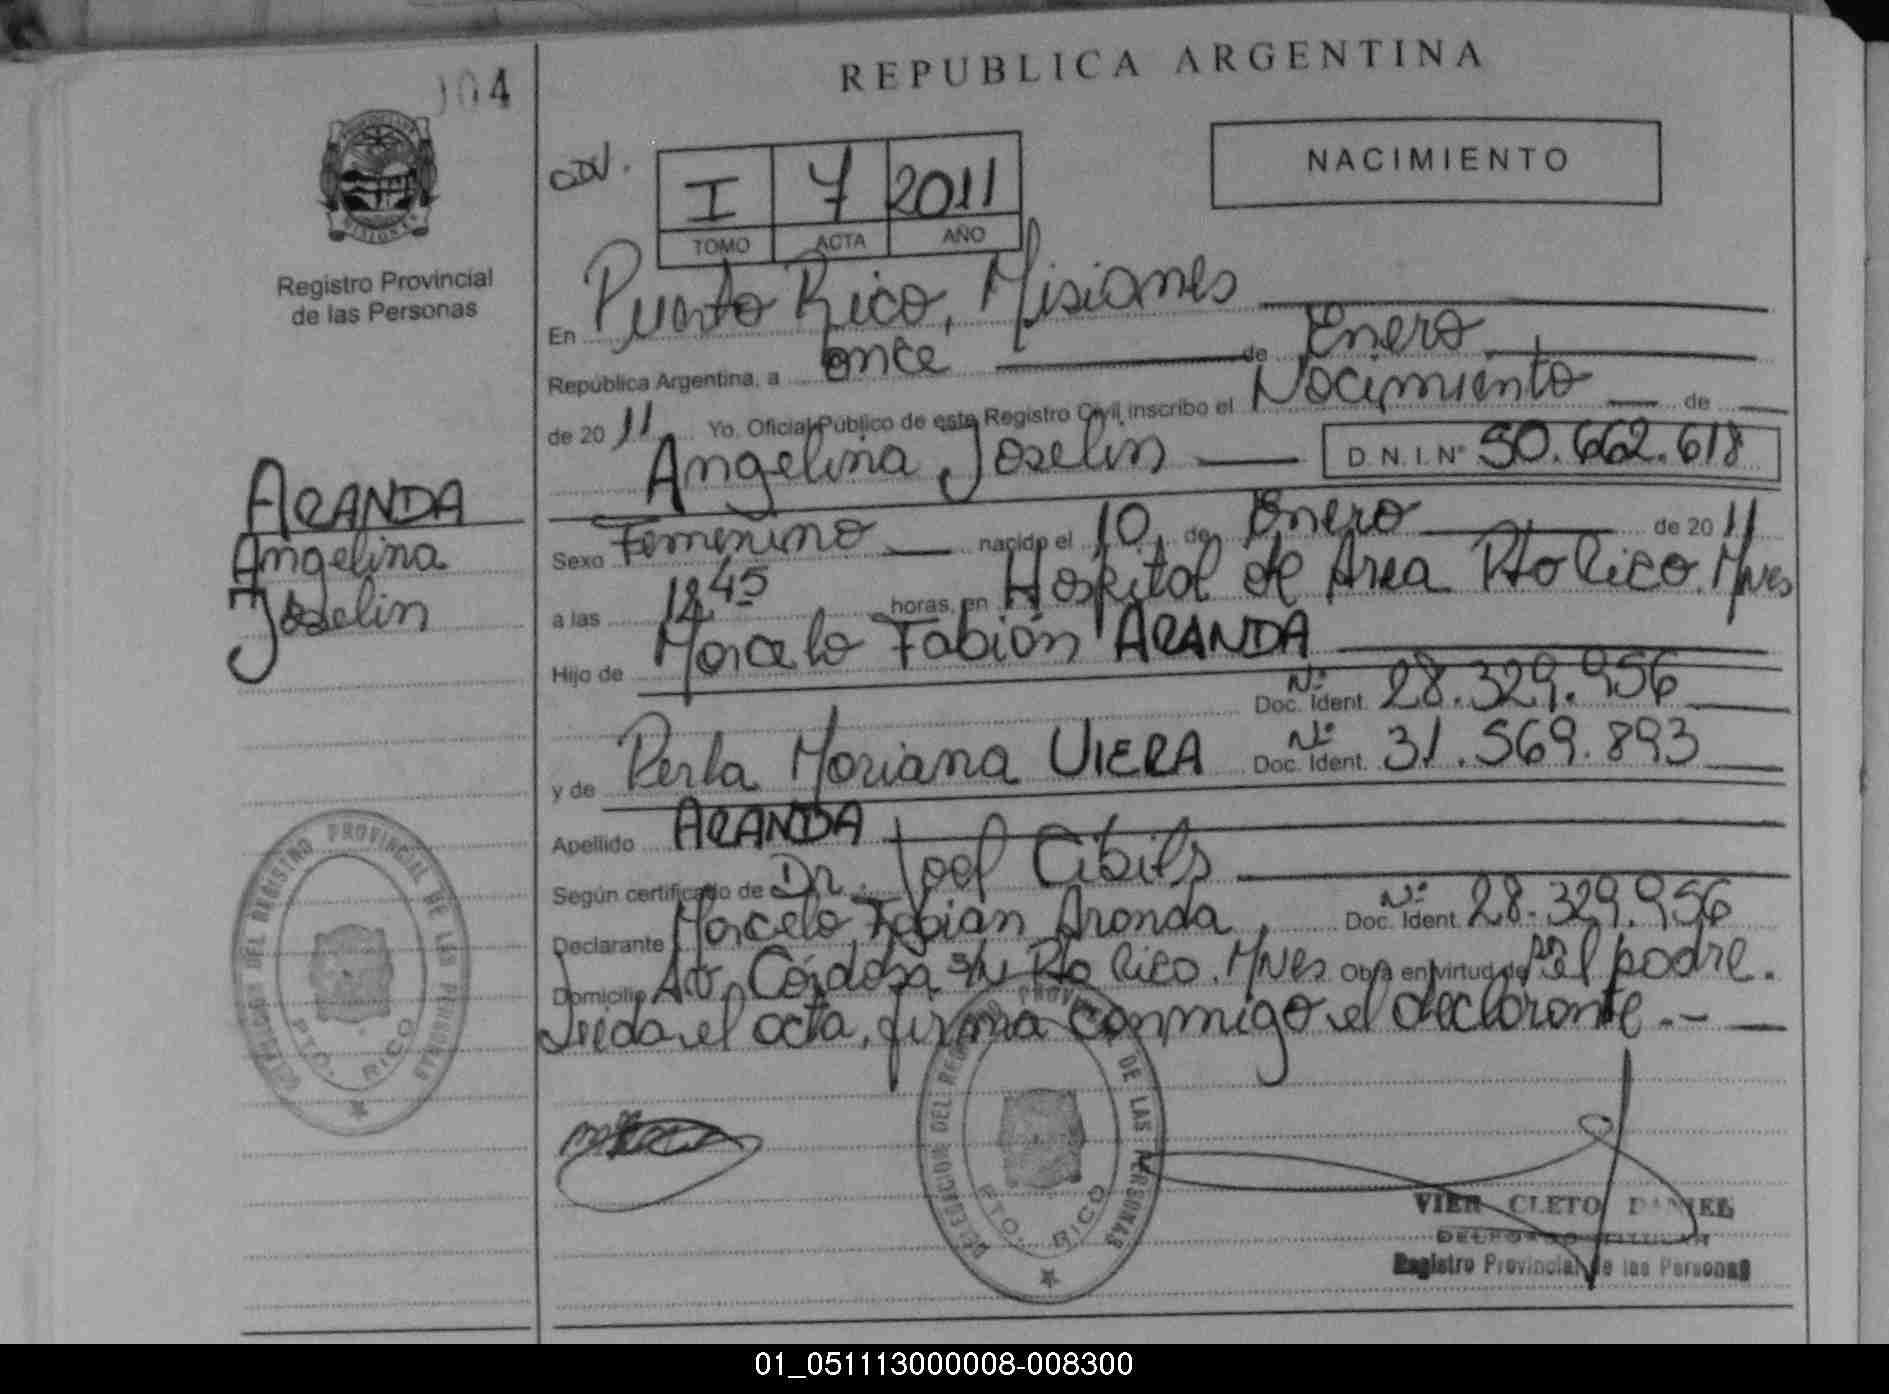 104
REPUBLICA ARGENTINA
NACIMIENTO
I 7 2011
TOMO ACTA AÑO
Registro Provincial
de las Personas
En Puerto Rico, Misiones
República Argentina, a once de Enero
de 2011 Yo, Oficial Público de este Registro Civil, inscribo el Nacimiento de
Angelina Joselin D.N.I. Nº 50.662.618
ARANDA
Angelina
Joselin
Sexo Femenino nacido el 10 de Enero de 2011
a las 1245 horas, en Hospital de Area Pto Rico. Mnes
Hijo de Marcelo Fabián ARANDA
Doc. Ident. Nº 28.329.956
y de Perla Mariana VIERA Doc. Ident. Nº 31.569.893
Apellido ARANDA
Según certificado de Dr. Joel Cibils
Declarante Marcelo Fabian Aranda, Doc. Ident. Nº 28.329.956
Domicilio Av. Córdoba s/n Pto Rico. Mnes Obra en virtud de el padre.
Leida el acta, firma conmigo el declarante.-
DELEGACION DEL REGISTRO PROVINCIAL DE LAS PERSONAS
PTO. RICO
DELEGACION DEL REGISTRO PROVINCIAL DE LAS PERSONAS
PTO. RICO
VIER CLETO DANIEL
DELEGADO TITULAR
Registro Provincial de las Personas
01_051113000008-008300